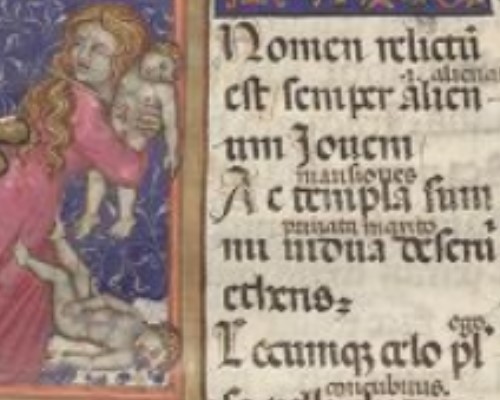 Nomen relictū
.i. aliena
est semper alien
um Jouem
mansiones
Ac templa sum
priuata marito
mi uidua deserui
etheris
ego
Locumqȝ celo pl
concubinis.